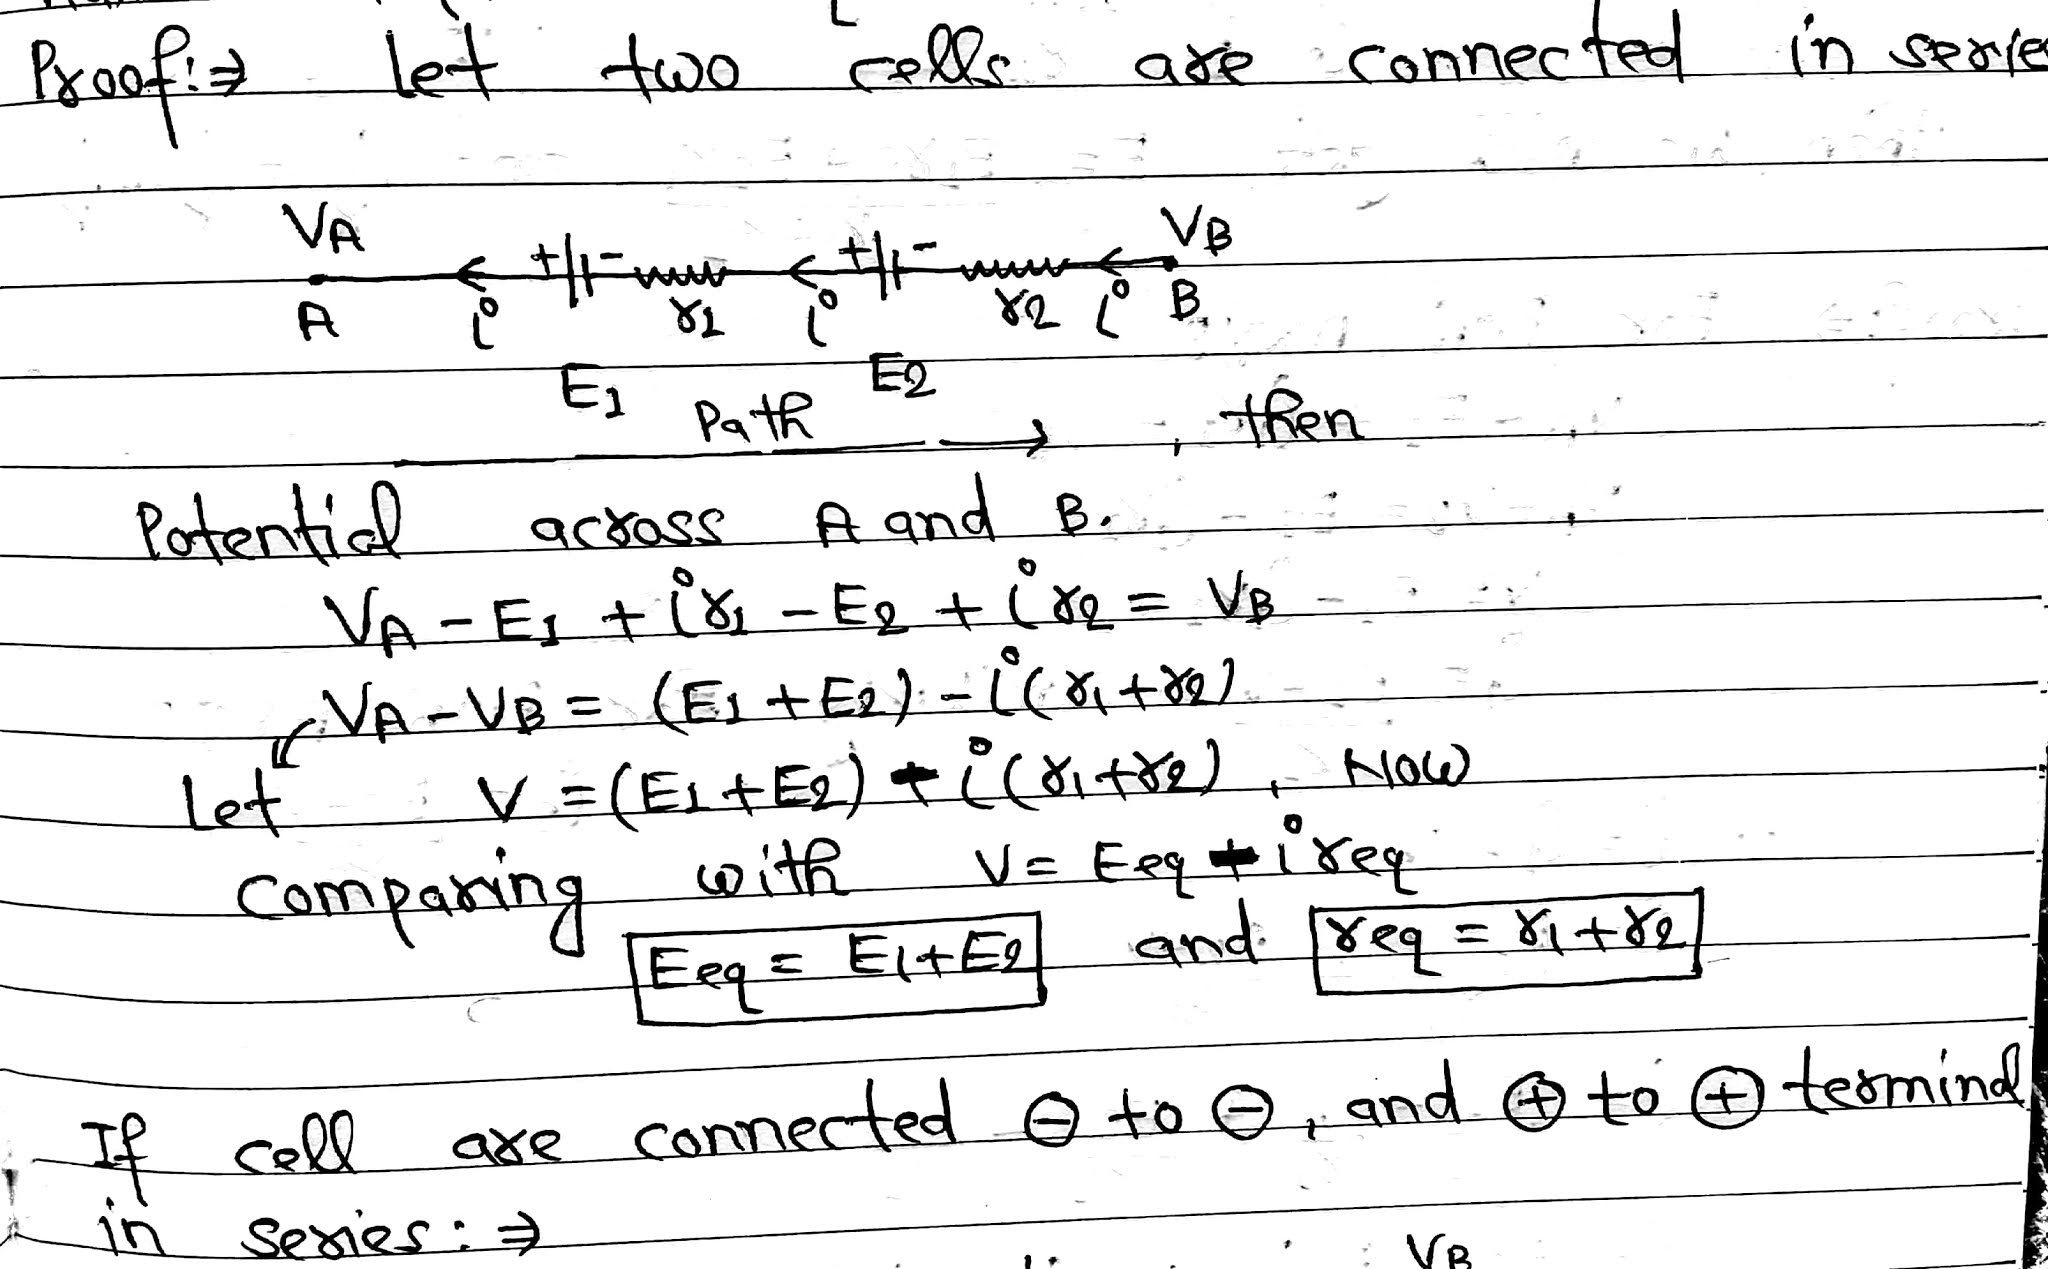 Proof:⇒ Let two cells are connected in serie
VA VB
+ - + -
A i r1 i r2 i B
E1 E2
Path → , then
Potential across A and B.
VA - E1 + ir1 - E2 + ir2 = VB
VA - VB = (E1 + E2) - i(r1 + r2)
Let V = (E1 + E2) - i(r1 + r2) , Now
Comparing with V = Eeq - ireq
Eeq = E1 + E2 and req = r1 + r2
If cell are connected ⊖ to ⊖, and ⊕ to ⊕ terminal
in series:⇒
VB